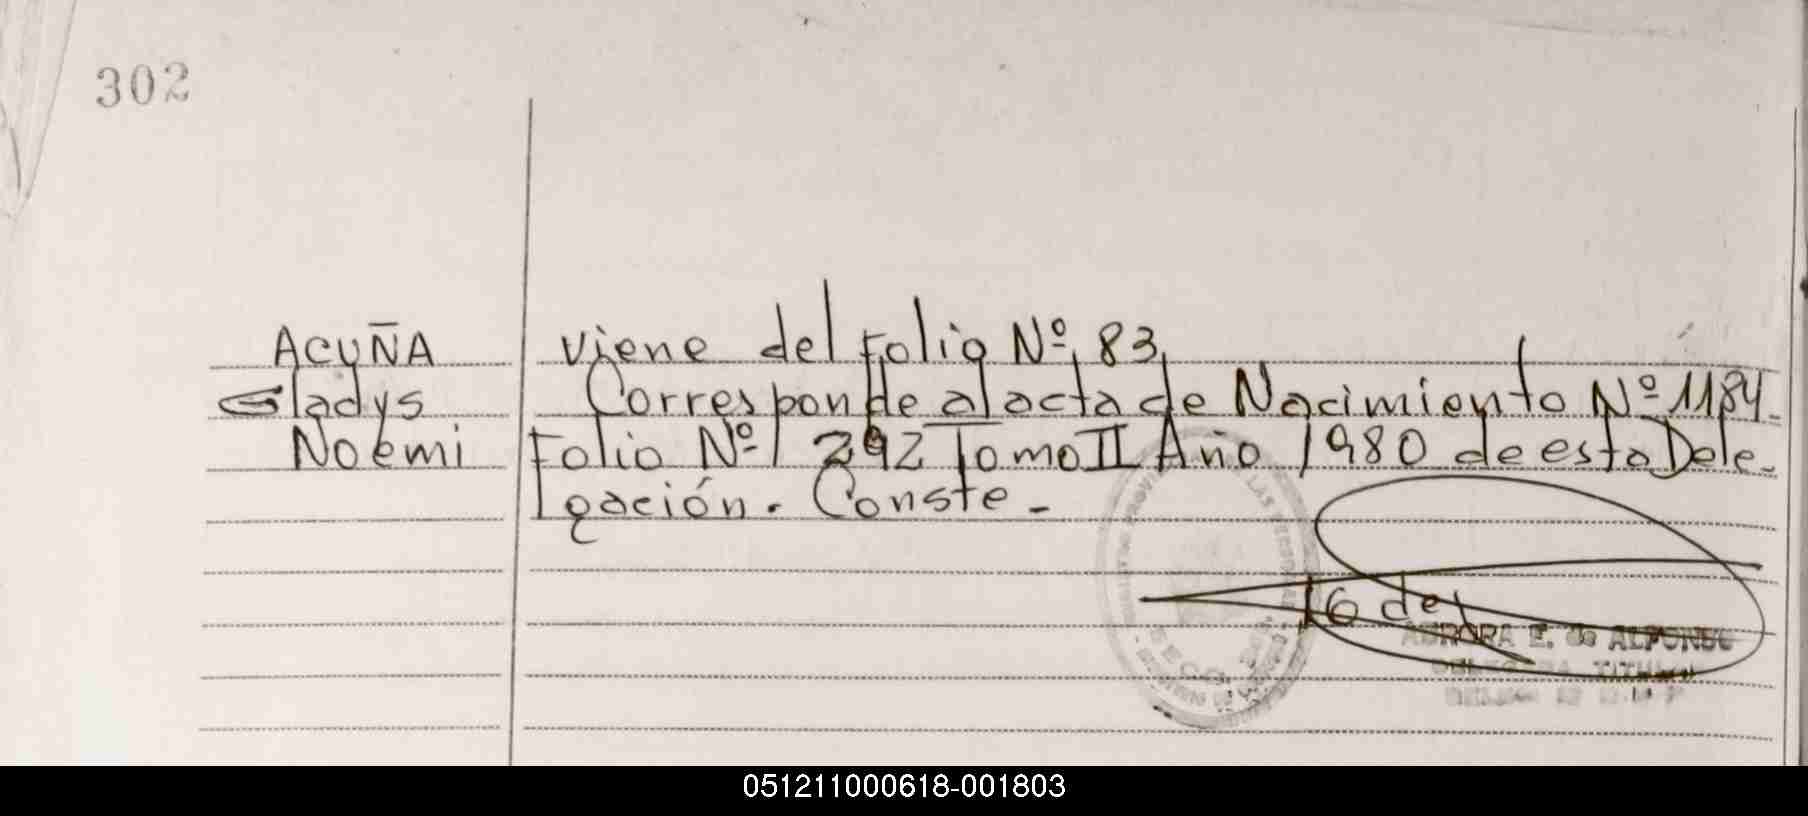 302
ACUÑA
Gladys
Noemi
viene del Folio Nº 83
Corresponde al acta de Nacimiento Nº 1184
Folio Nº 292 Tomo II Año 1980 de esta Dele-
gación. Conste -
AURORA E. de ALFONSO
051211000618-001803